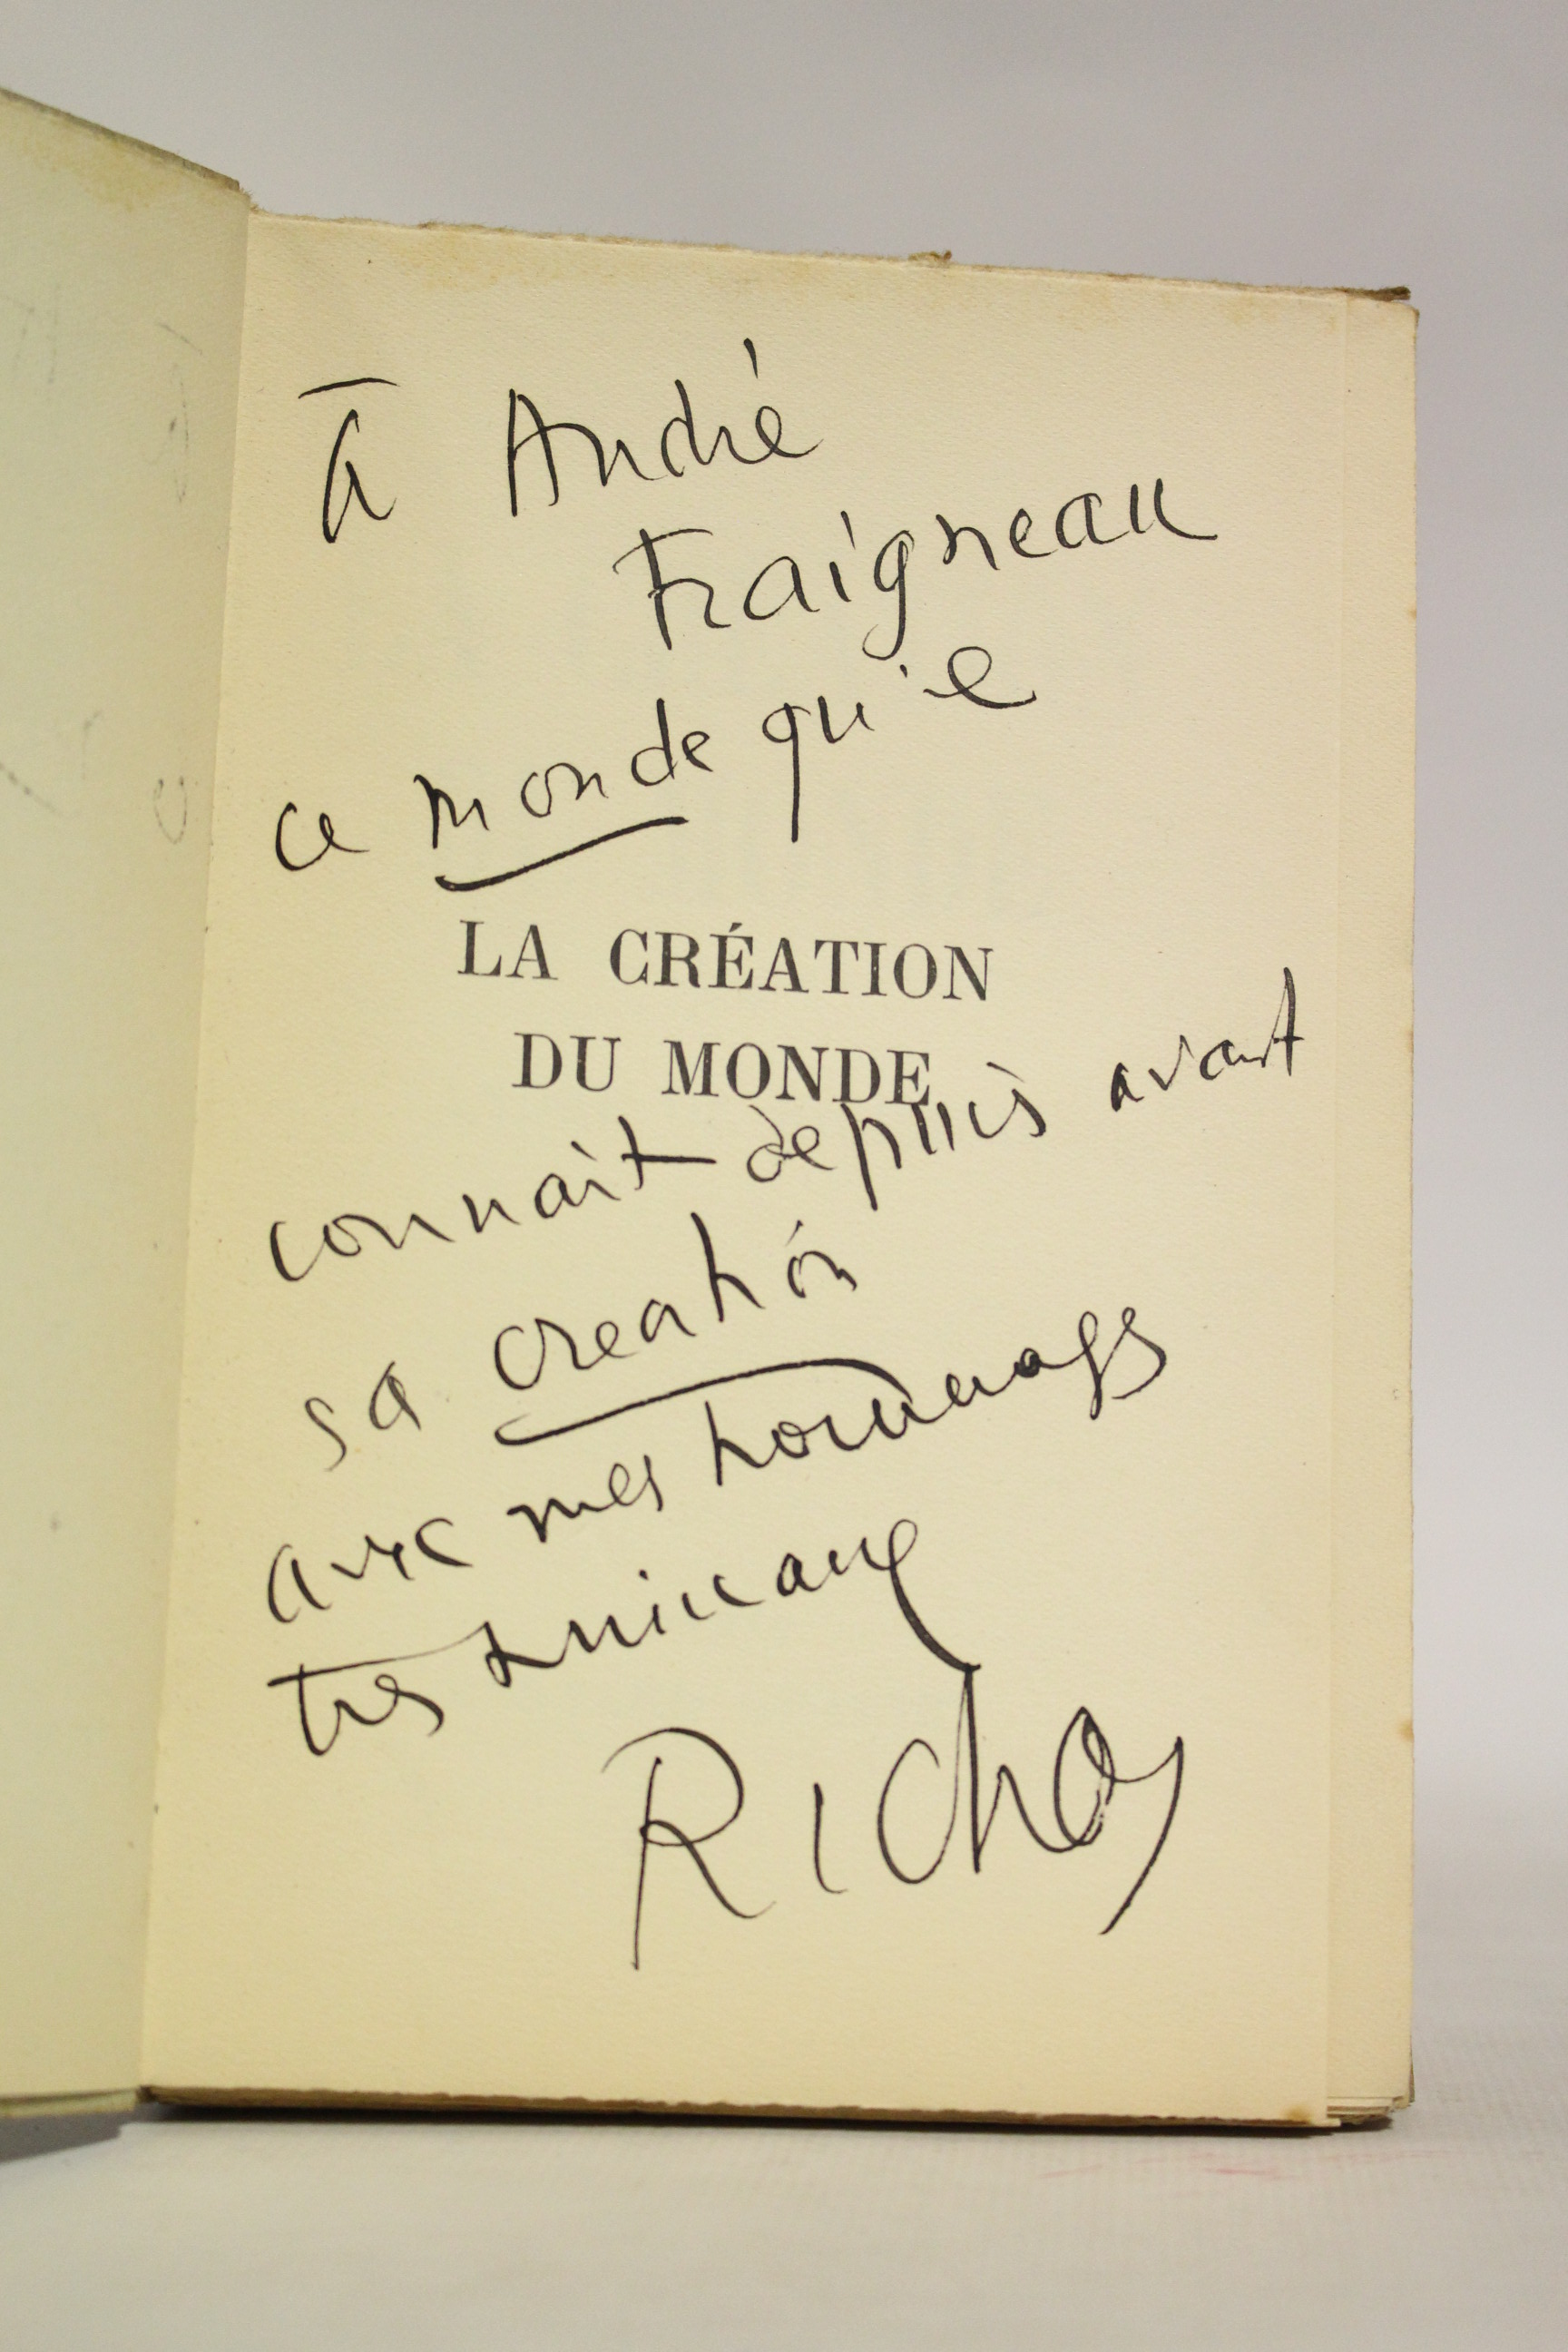 À André
Fraigneau
ce monde qu'il
LA CRÉATION
DU MONDE
connait depuis avant
sa creation
avec mes hommages
tres amicaux